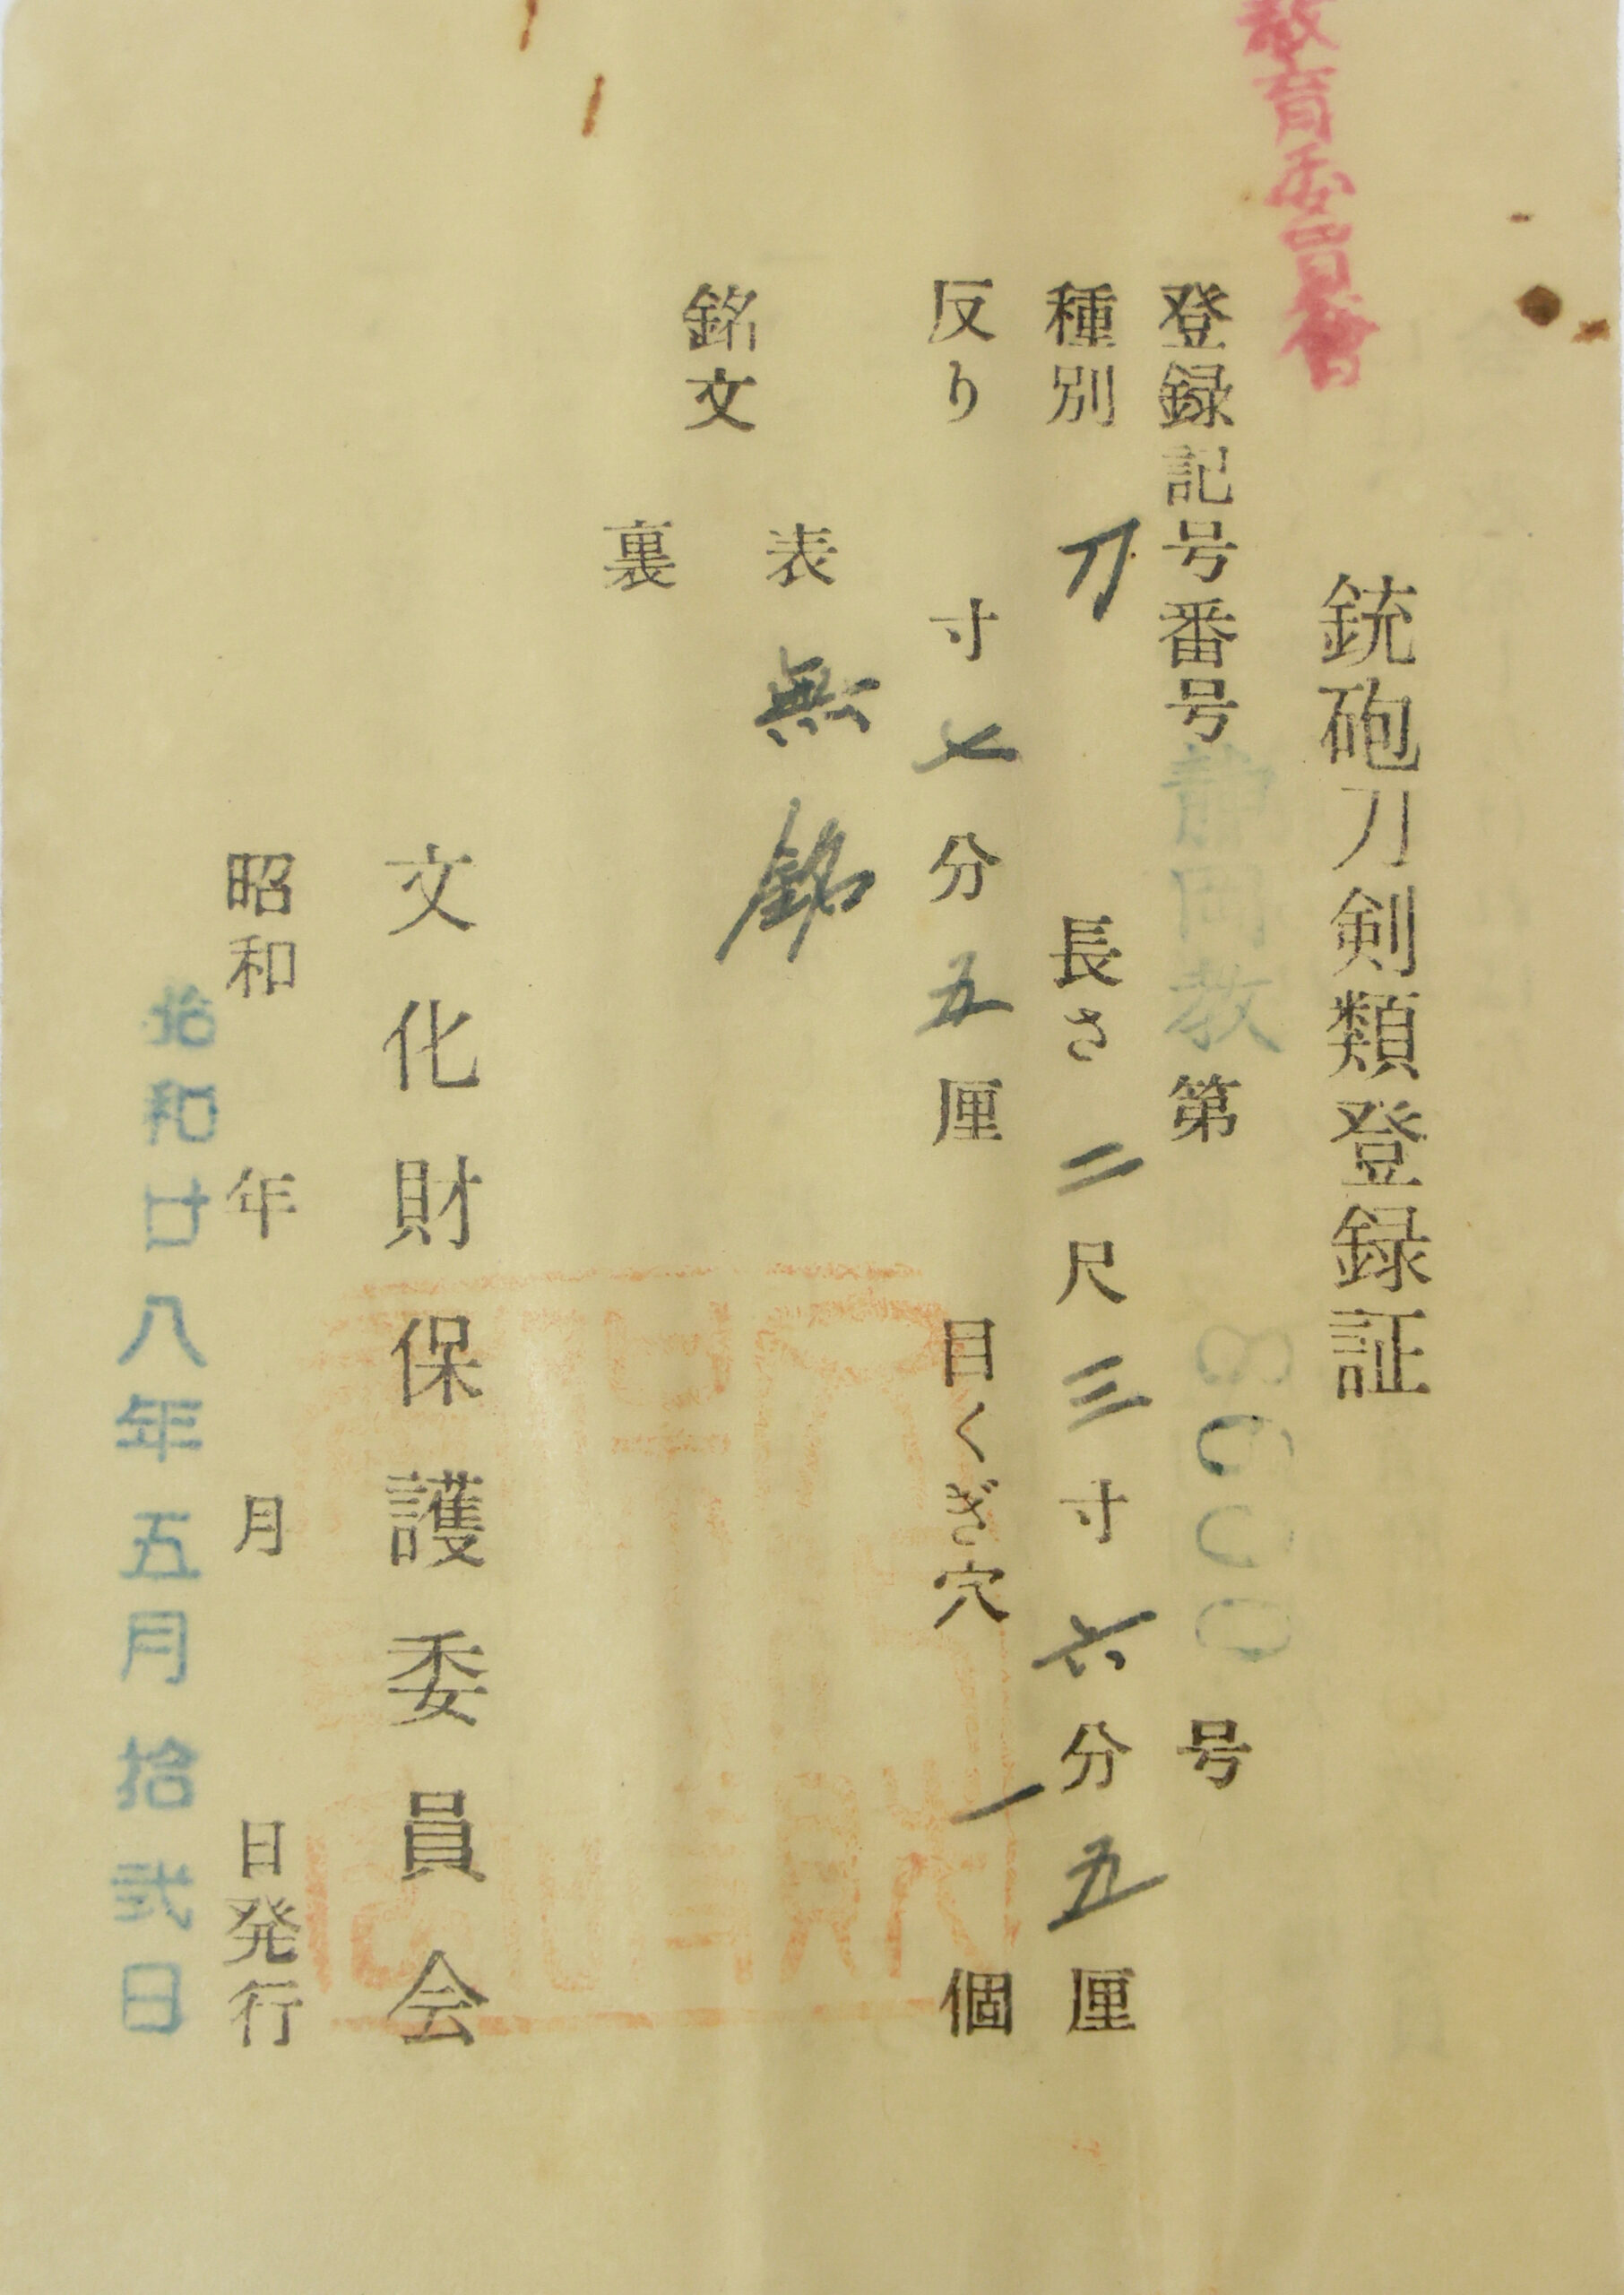 教育委員會
銃砲刀剣類登録証
登録記号番号 静岡教 第 8000 号
種別 刀 長さ 二尺三寸六分五厘
反り 寸七分五厘 目くぎ穴 一個
銘文
表 無銘
裏
文化財保護委員会
昭和 年 月 日発行
昭和廿八年五月拾弐日